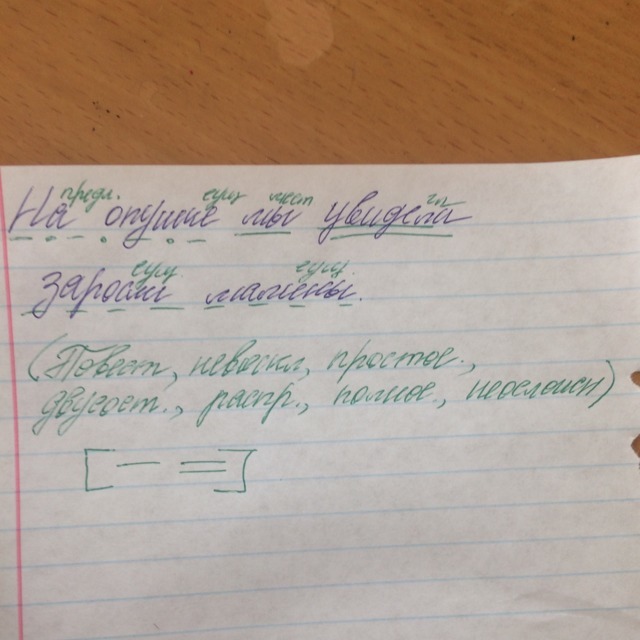 предл. сущ мест гл
На опушке мы увидели
сущ сущ.
заросли малины.
(Повест, невоскл, простое.,
двусост., распр., полное., неослажн)